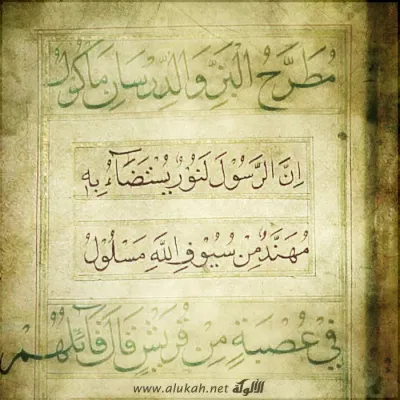 مُطَرَّحُ الْبَزِّ وَالدِّرْسَانِ مَاكُولُ
اِنَّ الرَّسُوْلَ لَنُوْرٌ يُسْتَضَآءُ بِهٖ
مُهَنَّدٌ مِنْ سُيُوْفِ اللّٰهِ مَسْلُوْلُ
فِيْ عُصْبَةٍ مِنْ قُرَيْشٍ قَالَ قَائِلُهُمْ
www.alukah.net الألوكة